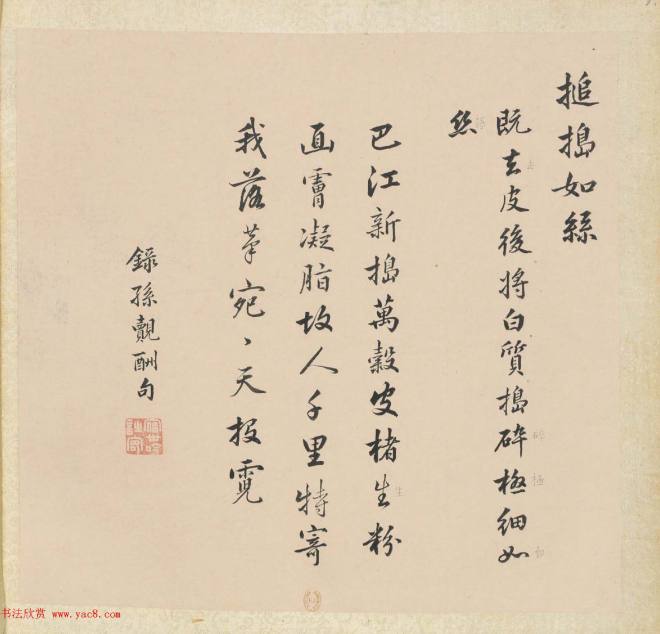 搥搗如絲
既去皮後將白質搗碎極細如
絲
巴江新搗萬榖皮楮生粉
面霤凝脂故人千里特寄
我落筆宛丶天投霓
錄孫覿酬句
书法欣赏 www.yac8.com